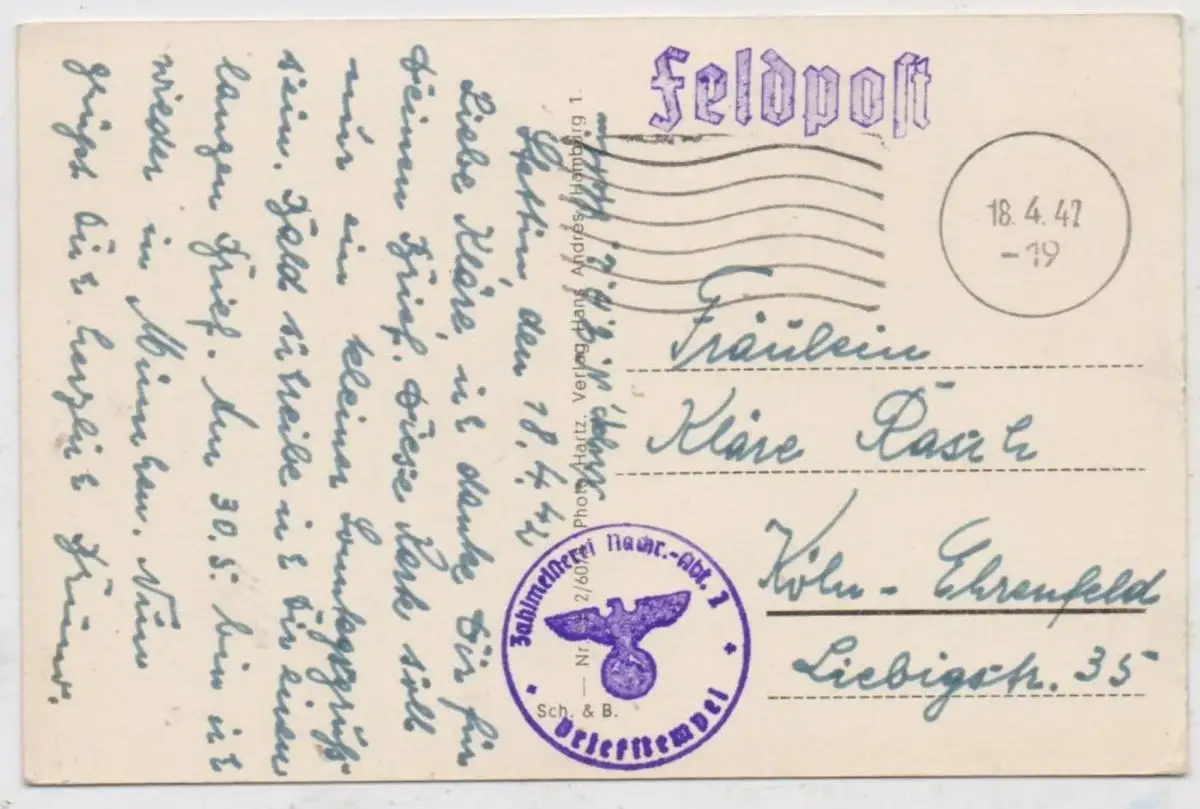 Feldpost
18.4.42
-19
Stettin, den 18.4.42
Liebe Kläre ich danke Dir für
Deinen Brief. Diese Kark soll
nur ein kleiner Sonntagsgruß
sein. Bald schreibe ich Dir einen
langen Brief. Am 30.5. bin ich
wieder in München. Nun
grüßt Dich herzlich
Fräulein
Kläre Rasch
Köln-Ehrenfeld
Liebigstr. 35
Nr. 2/60 Photo Hartz. Verlag Hans Andres, Hamburg 1.
Sch. & B.
Zahlmeisterei Nachr.-Abt. 1
Briefstempel